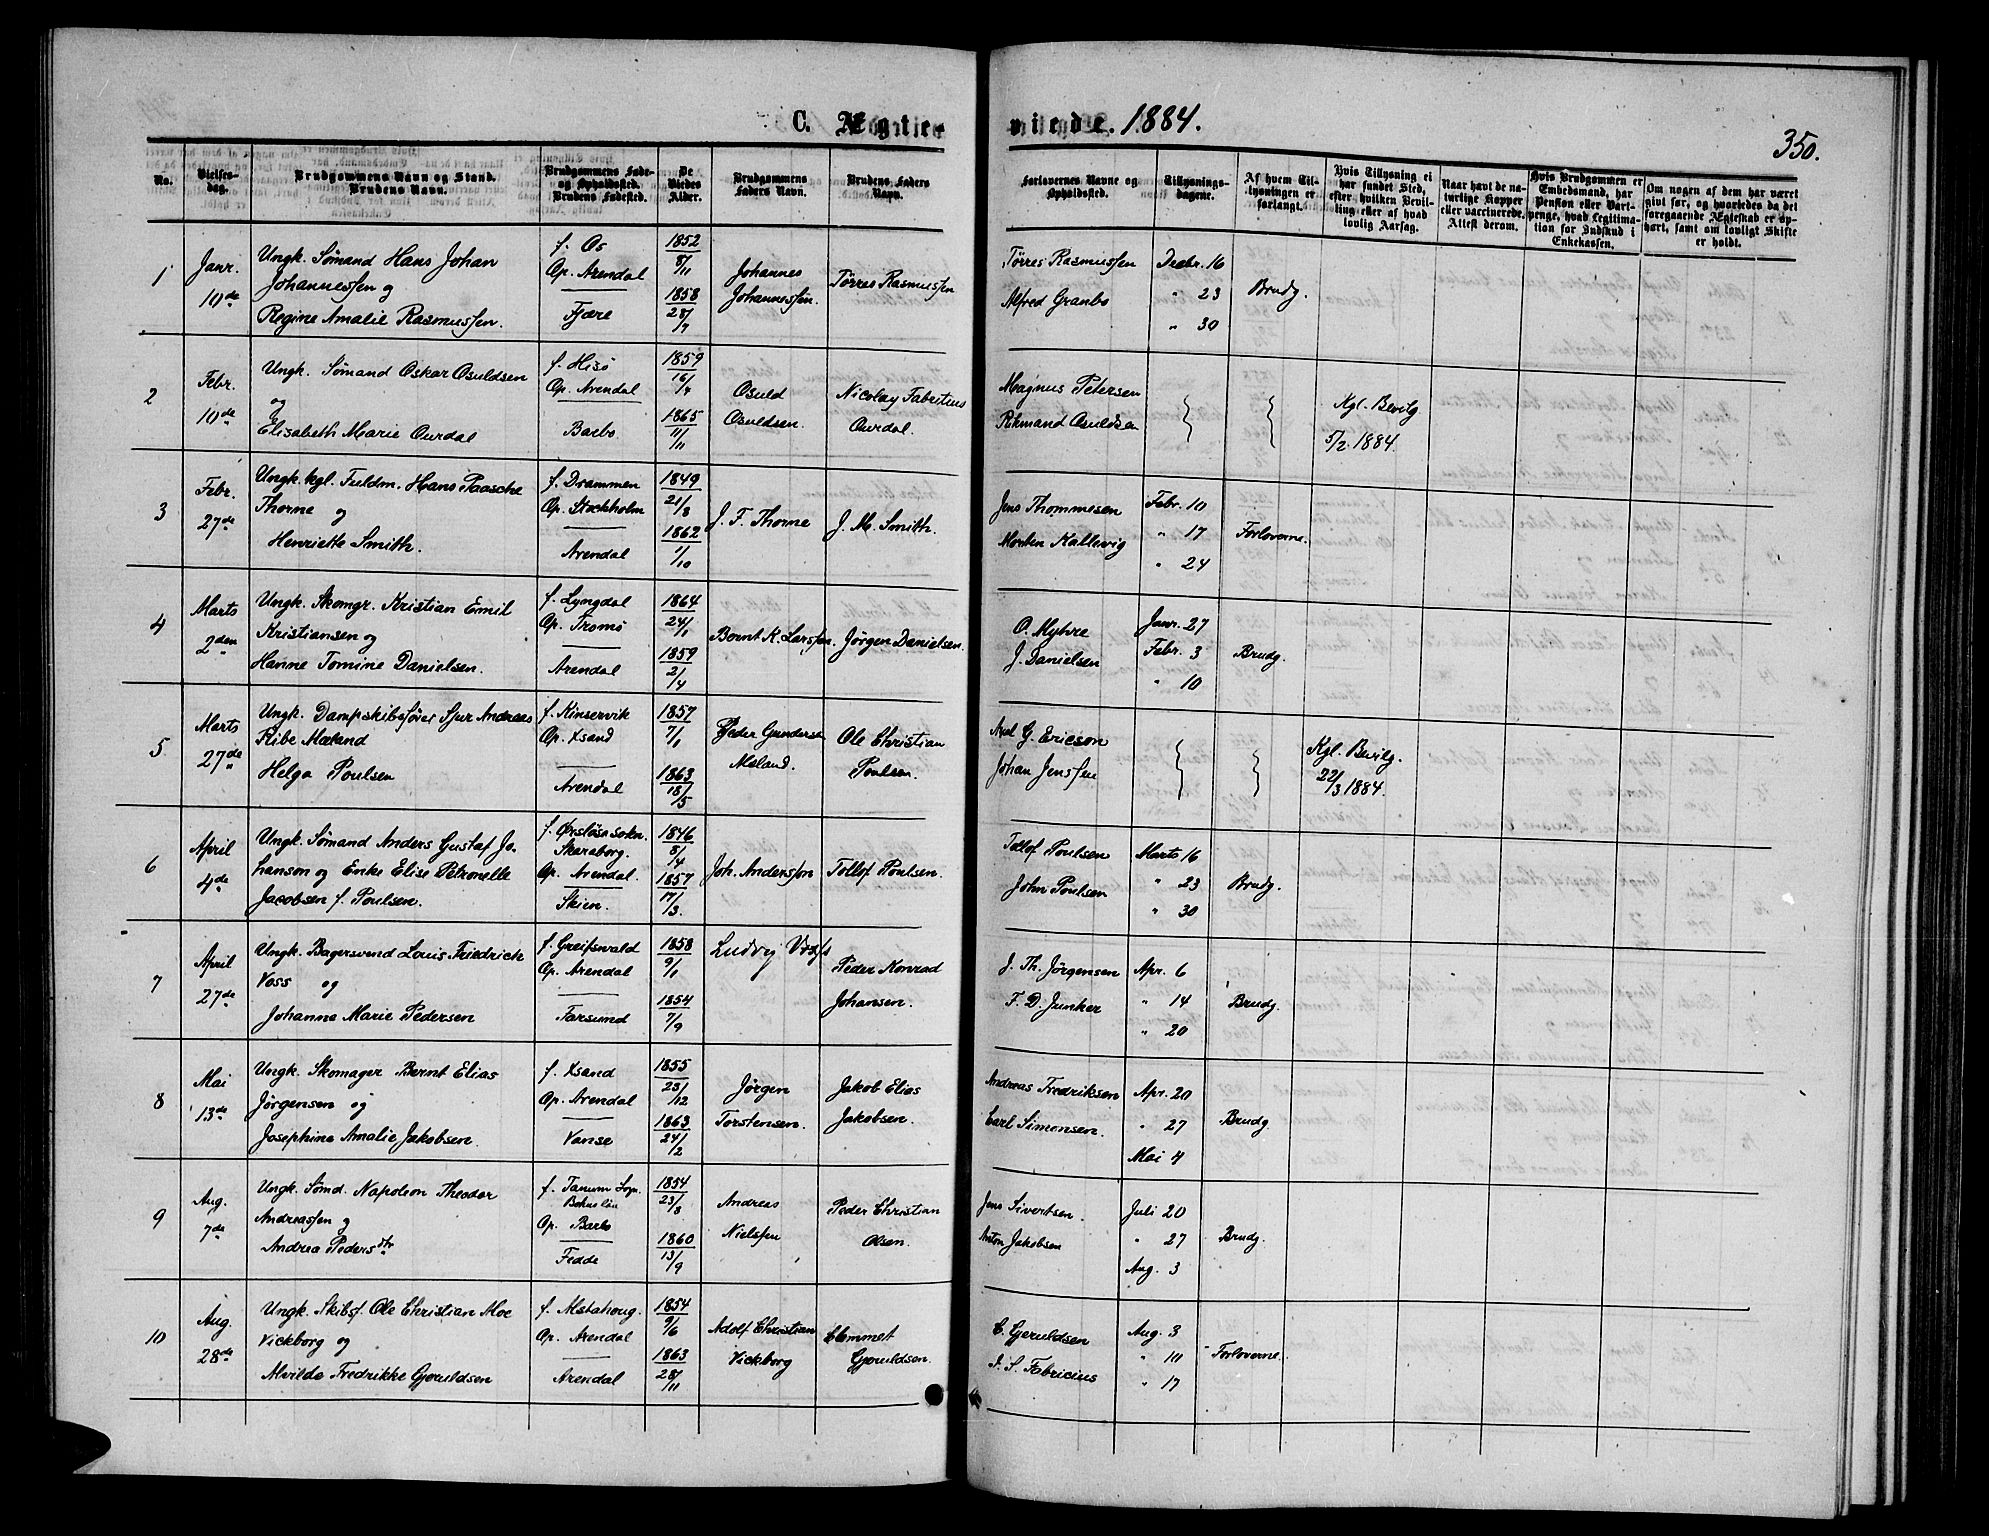 C. Ægte-
viede. 1884.
350.
No.
Vielses-
dag.
Brudgommens Navn og Stand.
Brudens Navn.
Brudgommens Føde-
og Opholdsted.
Brudens Fødested.
De
Viedes
Alder.
Brudgommens
Faders Navn.
Brudens Faders
Navn.
Forlovernes Navne og
Opholdsted.
Tillysnings-
dagene.
Af hvem Til-
lysningen er
forlangt.
Hvis Tillysning ei
har fundet Sted,
efter hvilken Bevil-
ling eller af hvad
lovlig Aarsag.
Naar havt de na-
turlige Kopper
eller vaccinerede.
Attest derom.
Hvis Brudgommen er
Embedsmand, har
Pension eller Vart-
penge, hvad Legitima-
tion for Indskud i
Enkekassen.
Om nogen af dem har været
givt før, og hvorledes da det
foregaaende Ægteskab er op-
hørt, samt om lovligt Skifte
er holdt.
1
Janr.
10de
Ungk. Sømand Hans Johan
Johannessen og
Regine Amalie Rasmussen.
f. Os
Op. Arendal
Fjære
1852
8/11
1858
28/7
Johannes
Johannessen.
Tørres Rasmussen
Tørres Rasmussen
Alfred Granbo
Decbr. 16
" 23
" 30
Brudg.
2
Febr.
10de
Ungk. Sømand Oskar Osuldsen
og
Elisabeth Marie Ourdal
f. Hisø
Op. Arendal
Barbo
1859
16/7
1865
11/11
Osuld
Osuldsen.
Nicolay Fabritius
Ourdal.
Magnus Petersen
Osuldsen
Kgl. Bevilg
5/2 1884.
3
Febr.
27de
Ungk. kgl. Fuldm. Hans Paasche
Thorne og
Henriette Smith.
f. Drammen
Op. Stockholm
Arendal
1849
21/8
1862
1/10
J. F. Thorne
J. M. Smith.
Jens Thommesen
Morten Kallevig
Febr. 10
" 17
" 24
Forloverne.
4
Marts
2den
Ungk. Skomgr. Kristian Emil
Kristiansen og
Hanne Tomine Danielsen.
f. Lyngdal
Op. Tromø
Arendal
1864
24/1
1859
2/4
Bernt K. Larssen.
Jørgen Danielsen.
O. Myhre
J. Danielsen
Janr. 27
Febr. 3
" 10
Brudg.
5
Marts
27de
Ungk. Dampskibsfører Sjur Andreas
Ribe Mæland
Helga Poulsen
f. Kinservik
Op. Xsand
Arendal
1857
7/1
1863
18/5
Peder Gundersen
Meland.
Ole Christian
Poulsen.
Axel G. Ericson
Johan Jenssen
Kgl. Bevilg.
22/3 1884.
6
April
4de
Ungk. Sømand Anders Gustaf Jo-
hanson og Enke Elise Petronelle
Jacobsen f. Poulsen.
f. Ørsløsa sokn.
Skaraborg.
Op. Arendal.
Skien.
1846
8/4
1857
17/3.
Joh. Anderssen
Tollof Poulsen.
Tollof Poulsen
John Poulsen
Marts 16
" 23
" 30
Brudg.
7
April
27de
Ungk. Bagersvend Louis Friedrich
Voss og
Johanna Marie Pedersen
f. Greifswald
Op. Arendal
Farsund
1858
9/1
1854
7/9
Ludvig Voss
Peder Konrad
Johansen.
J. Th. Jørgensen
F. D. Junker
Apr. 6
" 14
" 20
Brudg.
8
Mai
13de
Ungk. Skomager Bernt Elias
Jørgensen og
Josephine Amalie Jakobsen.
f. Xsand
Op. Arendal
Vanse
1855
23/12
1863
24/2
Jørgen
Torstensen.
Jakob Elias
Jakobsen.
Andreas Fredriksen
Carl Simonsen.
Apr. 20
" 27
Mai 4
Brudg.
9
Aug.
7de
Ungk. Sømd. Napoleon Theodor
Andreassen og
Andrea Pedersdtr
f. Tanum Sogn
Bohuslän
Op. Barbo
Fedde
1854
23/8
1860
13/9
Andreas
Nielssen
Peder Christian
Olsen.
Jens Sivertsen.
Anton Jakobsen
Juli 20
" 27
Aug. 3
Brudg.
10
Aug.
28de
Ungk. Skibsf. Ole Christian Moe
Vickborg og
Alvilde Fredrikke Gjeruldsen
f. Alstahoug.
Op. Arendal
Arendal
1854
9/6
1863
28/11
Adolf Christian
Vickborg
Clemmet
Gjeruldsen.
C. Gjeruldsen
J. S. Fabricius
Aug. 3
" 10
" 17
Forloverne.